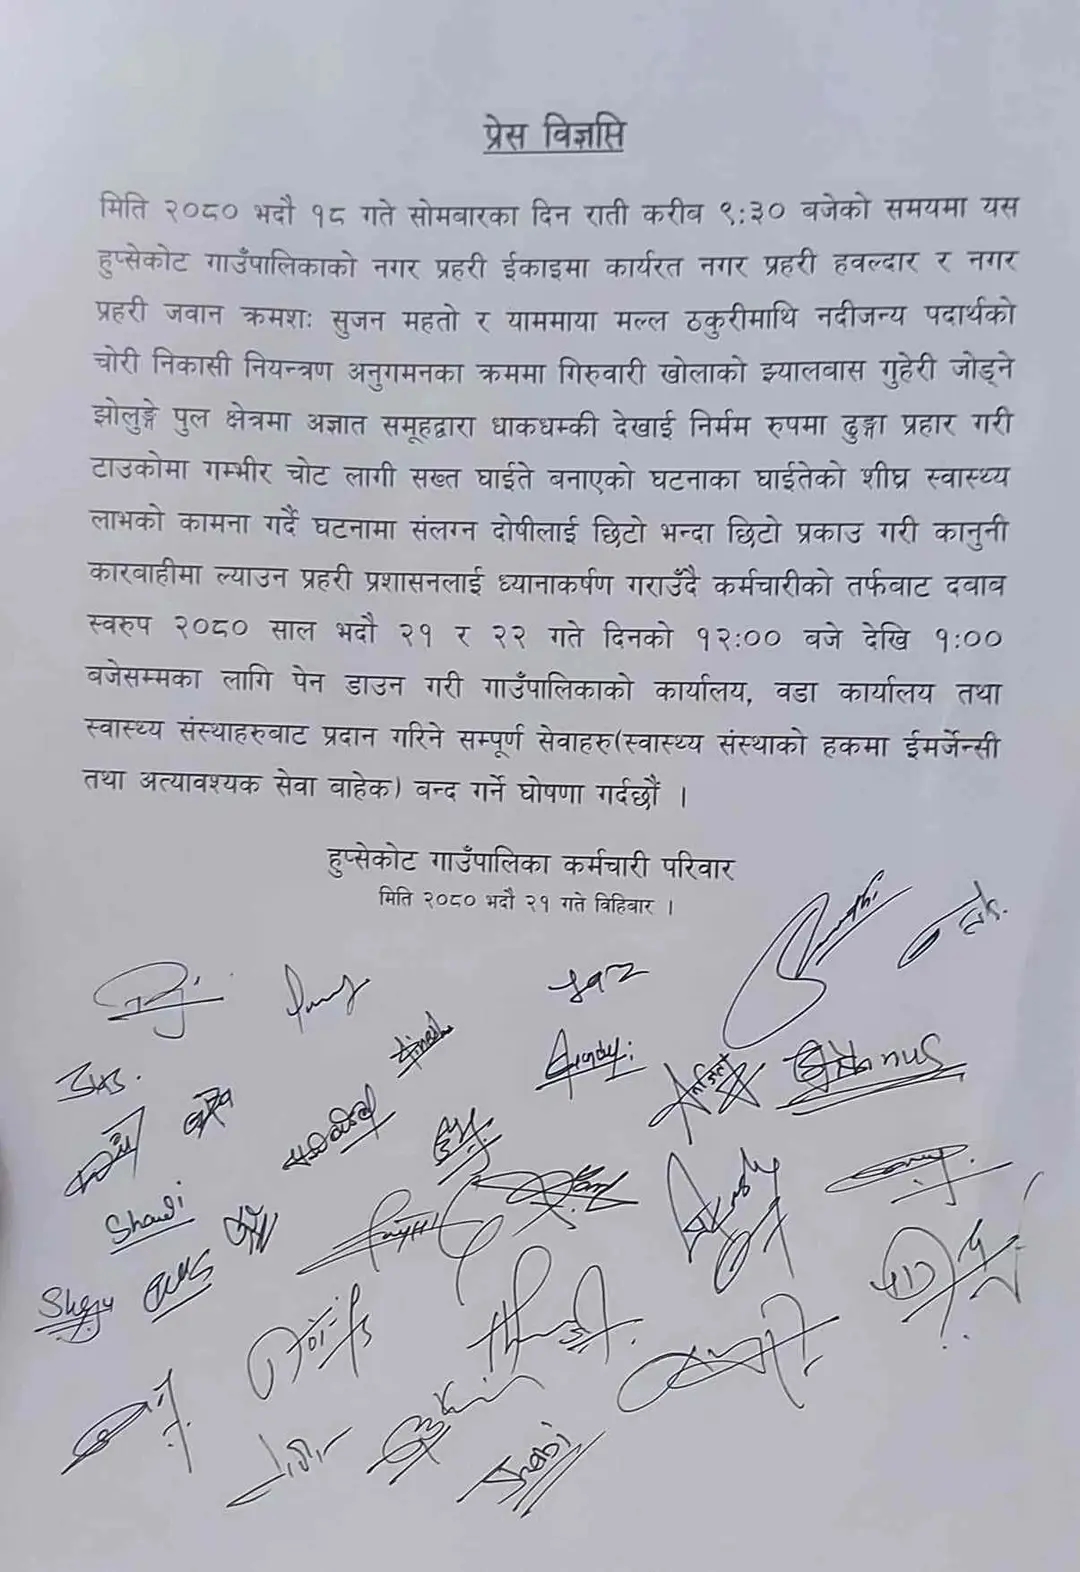 प्रेस विज्ञप्ति
मिति २०८० भदौ १८ गते सोमबारका दिन राती करीव ९:३० बजेको समयमा यस
हुप्सेकोट गाउँपालिकाको नगर प्रहरी ईकाइमा कार्यरत नगर प्रहरी हवल्दार र नगर
प्रहरी जवान क्रमशः सुजन महतो र याममाया मल्ल ठकुरीमाथि नदीजन्य पदार्थको
चोरी निकासी नियन्त्रण अनुगमनका क्रममा गिरुवारी खोलाको झ्यालवास गुहेरी जोड्ने
झोलुङ्गे पुल क्षेत्रमा अज्ञात समूहद्वारा धाकधम्की देखाई निर्मम रुपमा ढुङ्गा प्रहार गरी
टाउकोमा गम्भीर चोट लागी सख्त घाईते बनाएको घटनाका घाईतेको शीघ्र स्वास्थ्य
लाभको कामना गर्दै घटनामा संलग्न दोषीलाई छिटो भन्दा छिटो प्रकाउ गरी कानुनी
कारवाहीमा ल्याउन प्रहरी प्रशासनलाई ध्यानाकर्षण गराउँदै कर्मचारीको तर्फबाट दबाव
स्वरुप २०८० साल भदौ २१ र २२ गते दिनको १२:०० बजे देखि १:००
बजेसम्मका लागि पेन डाउन गरी गाउँपालिकाको कार्यालय, वडा कार्यालय तथा
स्वास्थ्य संस्थाहरुबाट प्रदान गरिने सम्पूर्ण सेवाहरु(स्वास्थ्य संस्थाको हकमा ईमर्जेन्सी
तथा अत्यावश्यक सेवा बाहेक) बन्द गर्ने घोषणा गर्दछौं ।
हुप्सेकोट गाउँपालिका कर्मचारी परिवार
मिति २०८० भदौ २१ गते विहिबार ।